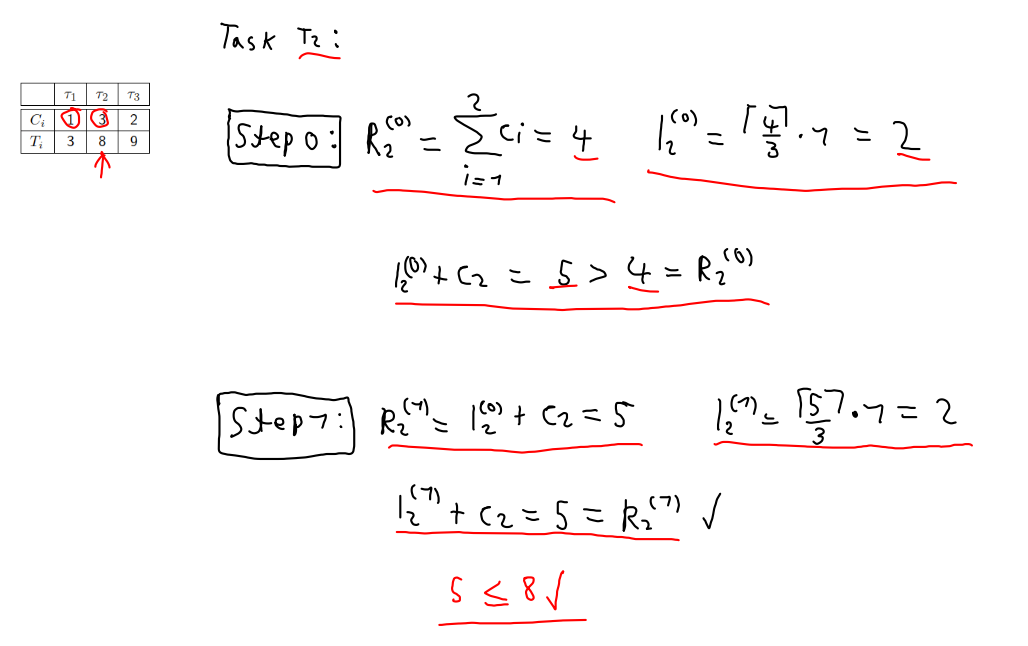 Task τ2:
τ1 τ2 τ3
Ci 1 3 2
Ti 3 8 9
Step 0: R₂⁽⁰⁾ = ∑_{i=1}^{2} Ci = 4 I₂⁽⁰⁾ = ⌈4/3⌉ · 1 = 2
I₂⁽⁰⁾ + C₂ = 5 > 4 = R₂⁽⁰⁾
Step 1: R₂⁽¹⁾ = I₂⁽⁰⁾ + C₂ = 5 I₂⁽¹⁾ = ⌈5/3⌉ · 1 = 2
I₂⁽¹⁾ + C₂ = 5 = R₂⁽¹⁾ ✓
5 ≤ 8 ✓